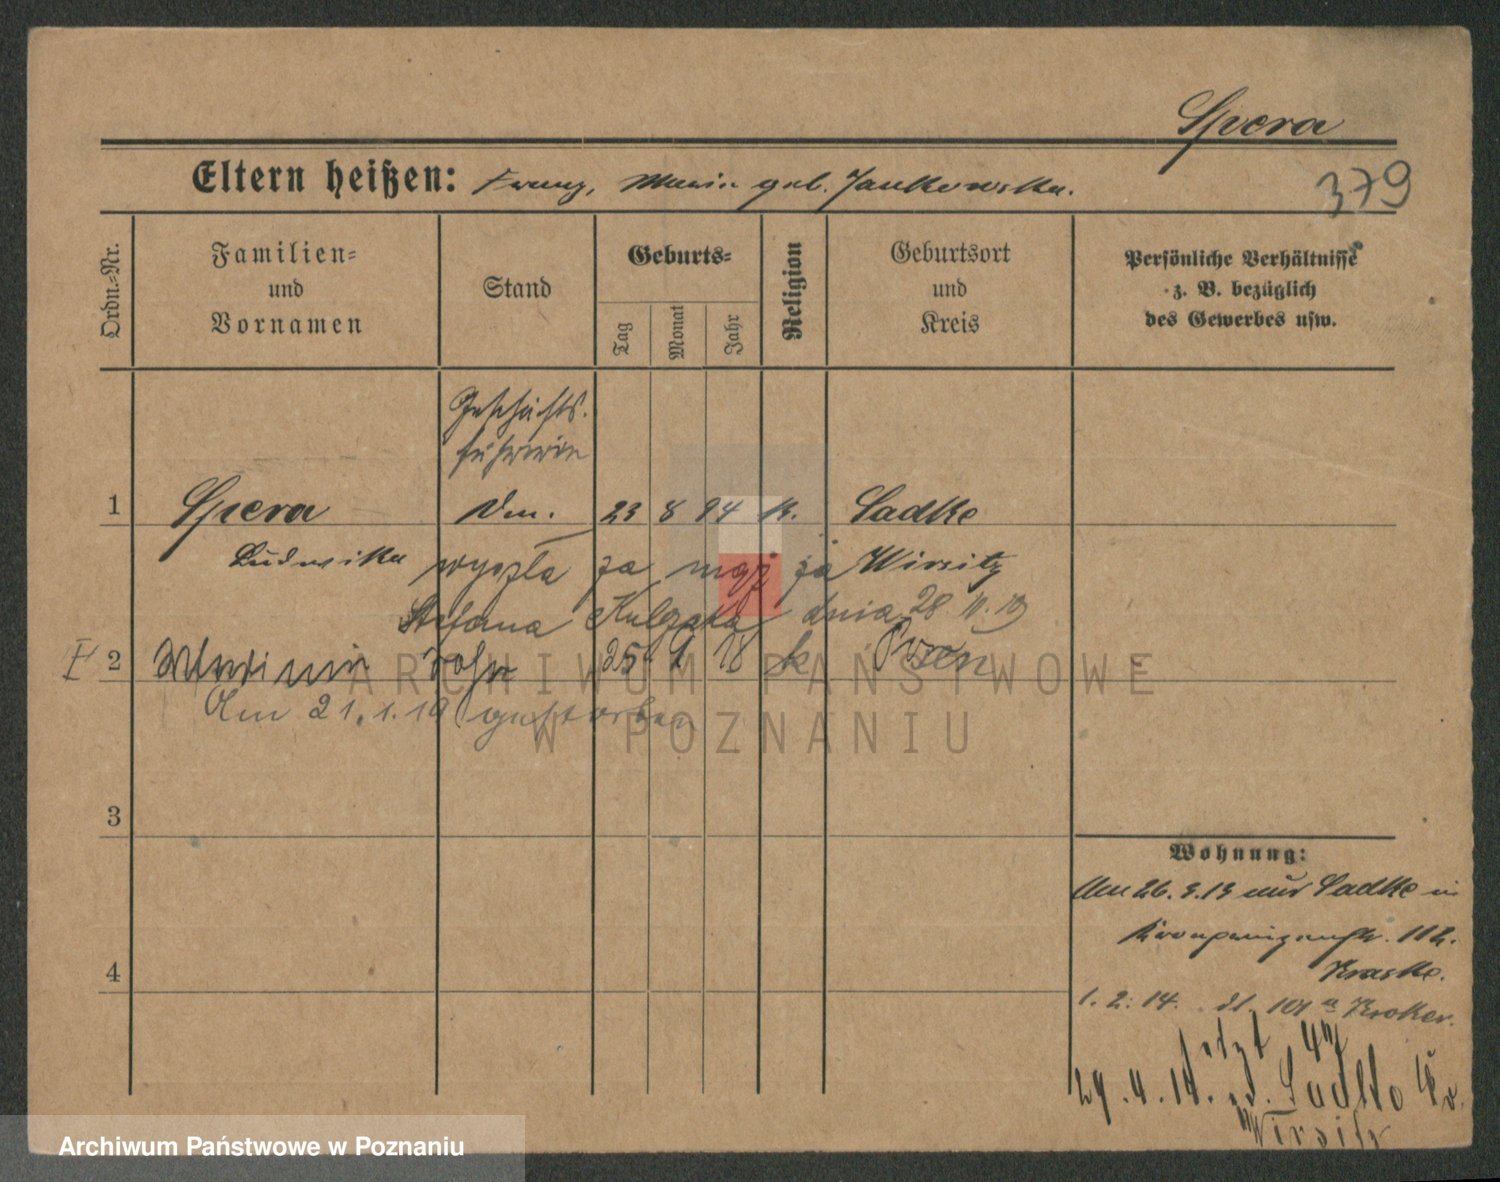 Spera
379
Eltern heißen: Franz, Maria geb. Jankowska.
Ordn.-Nr.
Familien-
und
Vornamen
Stand
Geburts-
Tag
Monat
Jahr
Religion
Geburtsort
und
Kreis
Persönliche Verhältnisse
z. B. bezüglich
des Gewerbes usw.
Geschäfts-
führerin
1 Spera 23 8 94 k. Sadke
Ludwika wyszła za mąż za Wirsitz
Stefana dnia 28.
2 25 9 18 k Posen
Am 21.1.19 gestorben
ARCHIWUM PAŃSTWOWE
W POZNANIU
3
4
Wohnung:
Am 26.3.13 aus Sadke in
Kronprinzenstr. 112.
1.2.14. d. 101a Kroker.
29.4.14. Sadke Kr.
Wirsitz
Archiwum Państwowe w Poznaniu